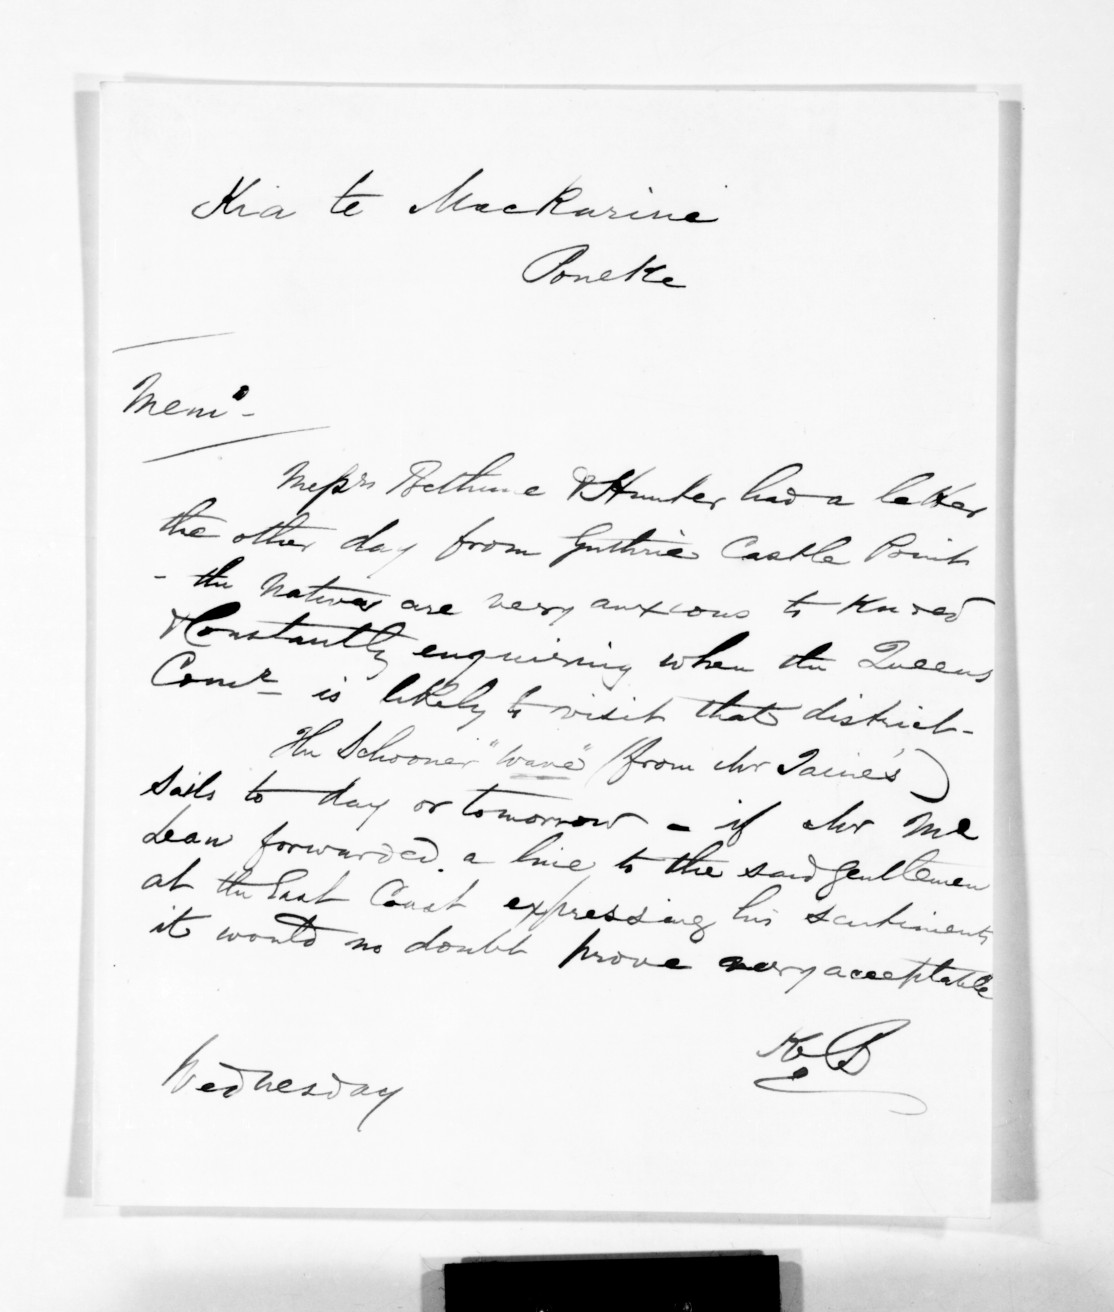 Kia te MacKarine
Poneke
Memo-
Messrs Bethune & Hunter had a letter
the other day from Guthrie Castle Point
- the Natives are very anxious to
& Constantly enquiring when the Queens
Comr is likely to visit that district-
The Schooner "Wave" (from Mr Taine's)
sails to day or tomorrow - if Mr Mc
Lean forwarded a line to the said gentlemen
at the East Coast expressing his sentiments
it would no doubt prove very acceptable
Wednesday